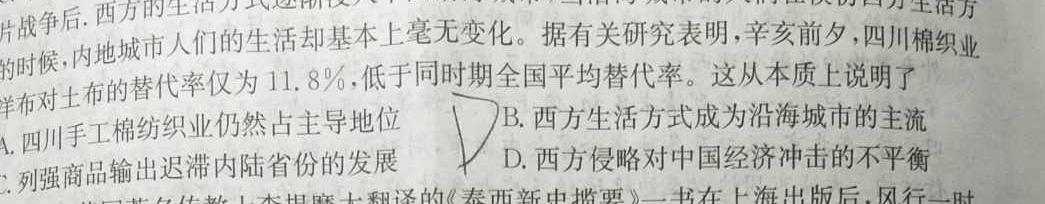 片战争后.西方的生活方式逐渐
生活方
的时候,内地城市人们的生活却基本上毫无变化。据有关研究表明,辛亥前夕,四川棉织业
洋布对土布的替代率仅为11.8%,低于同时期全国平均替代率。这从本质上说明了
A.四川手工棉纺织业仍然占主导地位 B.西方生活方式成为沿海城市的主流
C.列强商品输出迟滞内陆省份的发展 D.西方侵略对中国经济冲击的不平衡
D
翻译的《泰西新史揽要》一书在上海出版后,风行一时